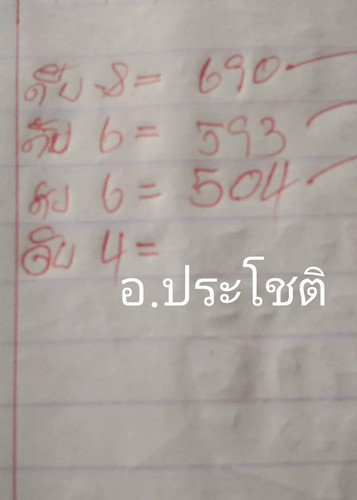 ดับ 8 = 690
ดับ 6 = 593
ดับ 6 = 504
ดับ 4 =
อ.ประโชติ